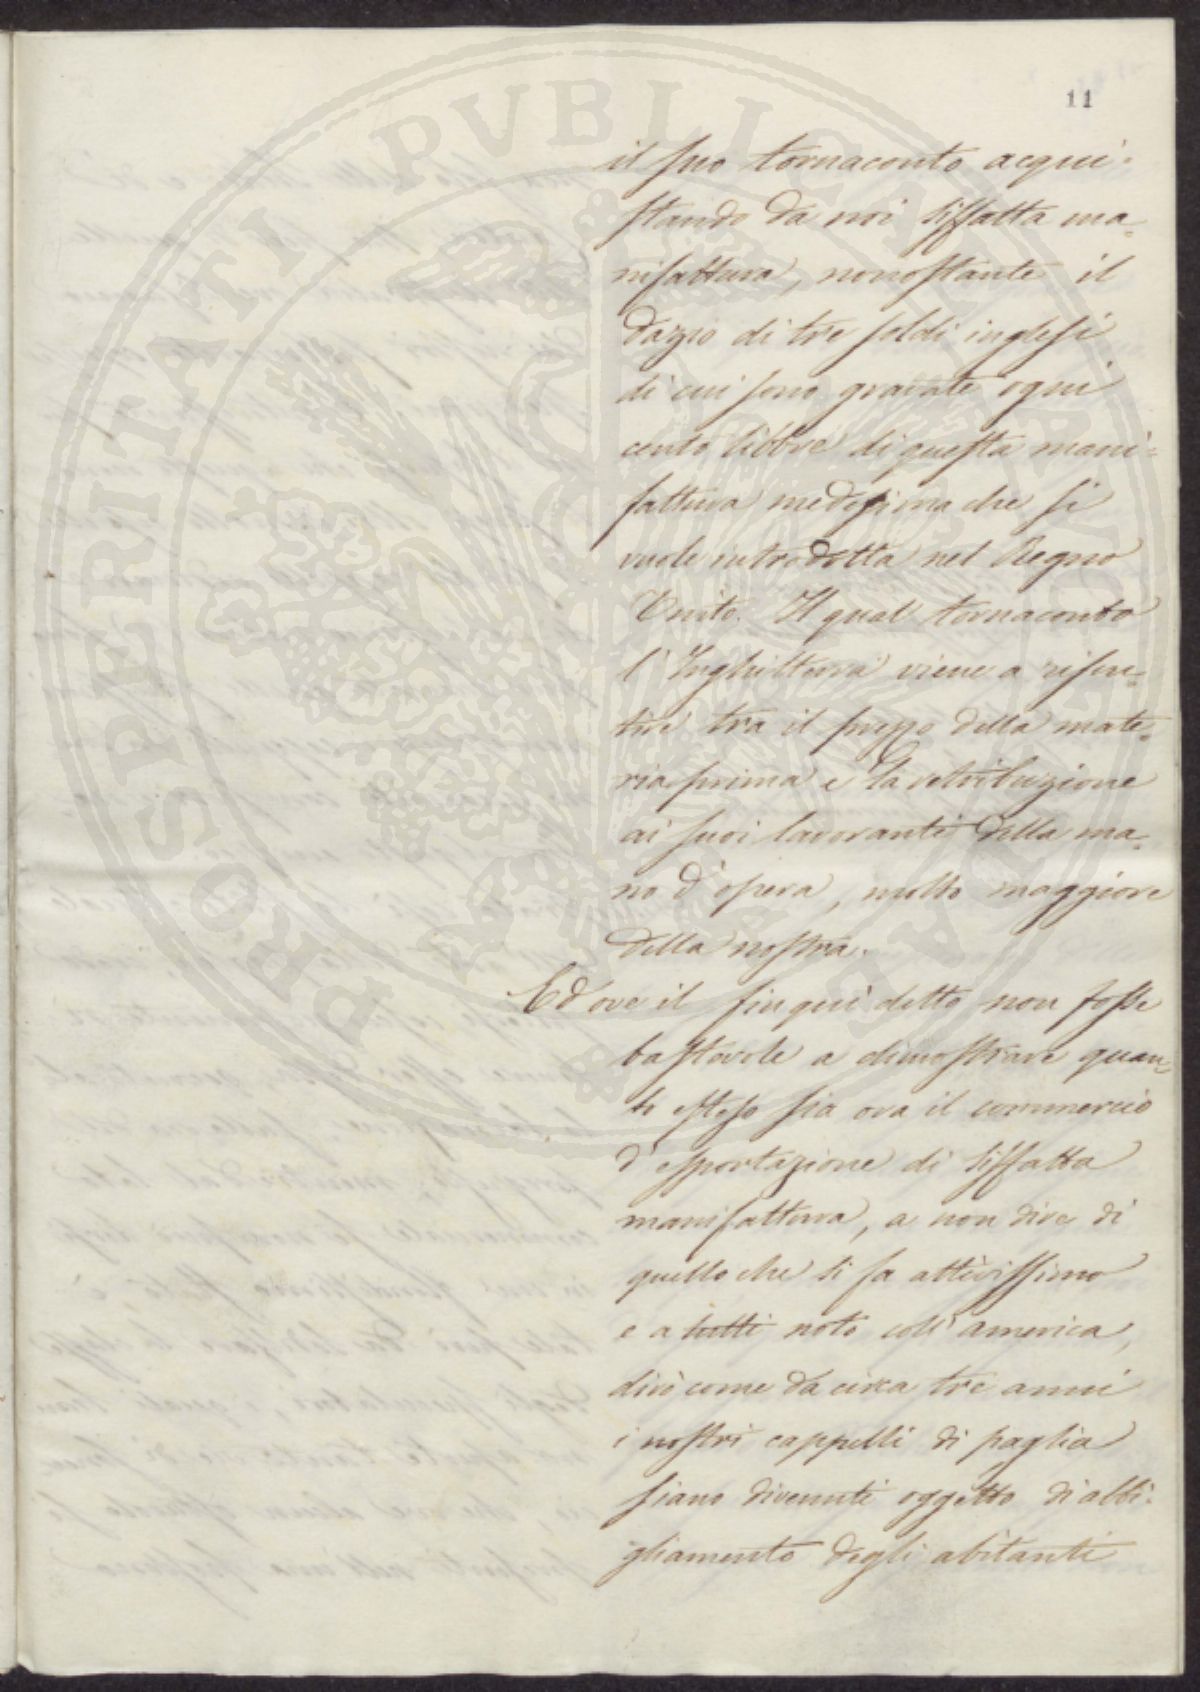 11
il suo tornaconto acqui-
stando da noi siffatta ma-
nifattura, nonostante il
dazio di tre soldi inglesi
di cui sono gravate ogni
cento libbre di questa mani-
fattura medesima che si
vuole introdotta nel Regno
Unito. Il qual tornaconto
l'Inghilterra viene a risen-
tire tra il prezzo della mate-
ria prima e la retribuzione
ai suoi lavoranti della ma-
no d'opera, molto maggiore
della nostra.
Ed ove il fin qui detto non fosse
bastevole a dimostrare quan-
to esteso sia ora il commercio
d'esportazione di siffatta
manifattura, a non dire di
quello che si fa attivissimo
e a tutti noto coll'america,
dirò come da circa tre anni
i nostri cappelli di paglia
siano divenuti oggetto di abbi-
gliamento degli abitanti
PROSPERITATI PVBLICAE AVGENDAE